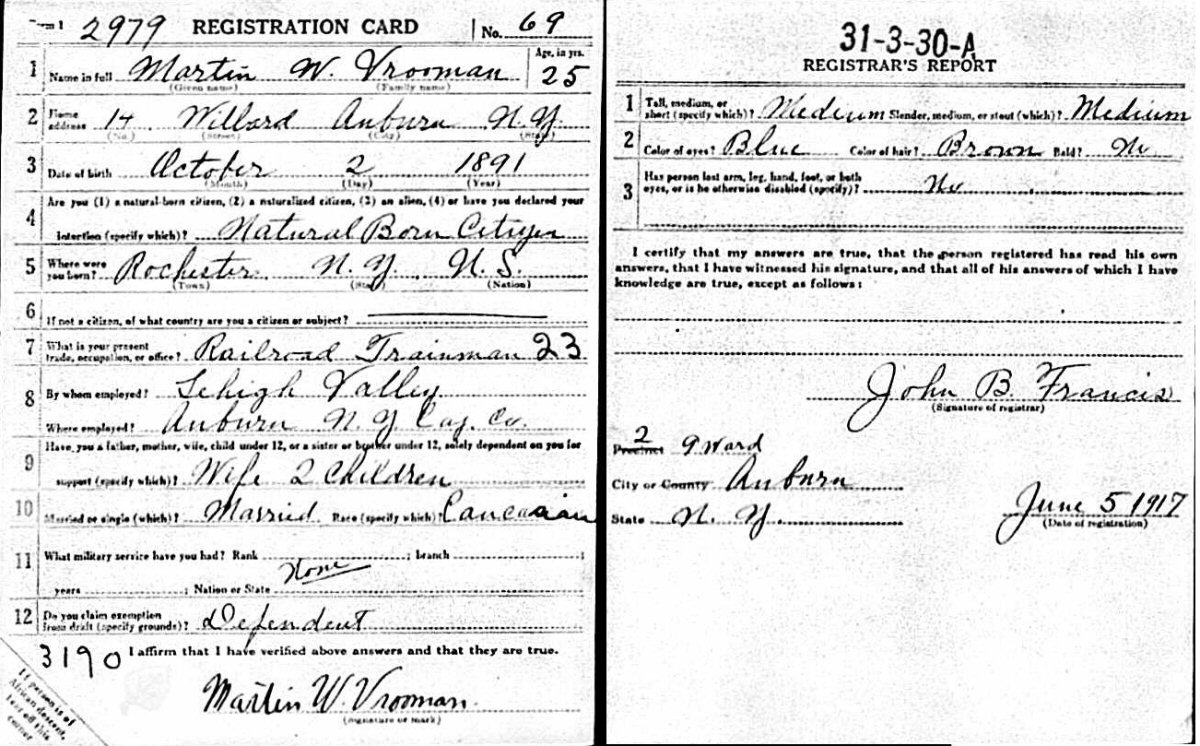 Form 1 2979 REGISTRATION CARD No. 69
1 Name in full Martin W. Vrooman Age, in yrs. 25
(Given name) (Family name)
2 Home address 14 Willard Auburn N.Y.
(No.) (Street) (City) (State)
3 Date of birth October 2 1891
(Month) (Day) (Year)
4 Are you (1) a natural-born citizen, (2) a naturalized citizen, (3) an alien, (4) or have you declared your
intention (specify which)? Natural Born Citizen
5 Where were you born? Rochester N.Y. U.S.
(Town) (State) (Nation)
6 If not a citizen, of what country are you a citizen or subject?
7 What is your present trade, occupation, or office? Railroad Trainman 23
8 By whom employed? Lehigh Valley
Where employed? Auburn N.Y. Cay. Co.
9 Have you a father, mother, wife, child under 12, or a sister or brother under 12, solely dependent on you for
support (specify which)? Wife 2 Children
10 Married or single (which)? Married Race (specify which)? Caucasian
11 What military service have you had? Rank ; branch ;
years ; Nation or State None
12 Do you claim exemption from draft (specify grounds)? Dependent
3190 I affirm that I have verified above answers and that they are true.
Martin W. Vrooman
(Signature or mark)
If person is of
African descent,
tear off this
corner
31-3-30-A
REGISTRAR'S REPORT
1 Tall, medium, or short (specify which)? Medium Slender, medium, or stout (which)? Medium
2 Color of eyes? Blue Color of hair? Brown Bald? No
3 Has person lost arm, leg, hand, foot, or both eyes, or is he otherwise disabled (specify)? No
I certify that my answers are true, that the person registered has read his own
answers, that I have witnessed his signature, and that all of his answers of which I have
knowledge are true, except as follows:
John B. Francis
(Signature of registrar)
Precinct 2 9 Ward
City or County Auburn
State N.Y.
June 5 1917
(Date of registration)